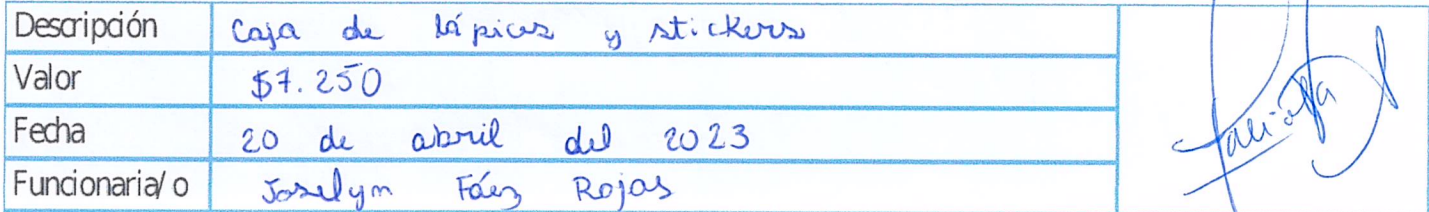 Descripción Caja de lápices y stickers
Valor $7.250
Fecha 20 de abril del 2023
Funcionaria/o Joselyn Fáez Rojas